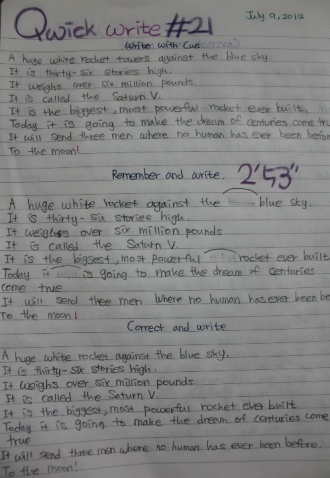 Qwick write #21
July 9, 2012
Write with Cue
A huge white rocket towers against the blue sky.
It is thirty-six stories high.
It weighs over six million pounds
It is called the Saturn V.
It is the biggest, most powerful rocket ever built.
Today it is going to make the dream of centuries come true
It will send three men where no human has ever been before
To the moon!
Remember and write. 2'53"
A huge white rocket against the blue sky.
It is thirty-six stories high.
It weighs over six million pounds
It is called the Saturn V.
It is the biggest, most powerful rocket ever built
Today it is going to make the dream of centuries
come true
It will send three men where no human has ever been be
To the moon!
Correct and write
A huge white rocket against the blue sky.
It is thirty-six stories high.
It weighs over six million pounds
It is called the Saturn V.
It is the biggest, most powerful rocket ever built
Today it is going to make the dream of centuries come
true
It will send three men where no human has ever been before.
To the moon!